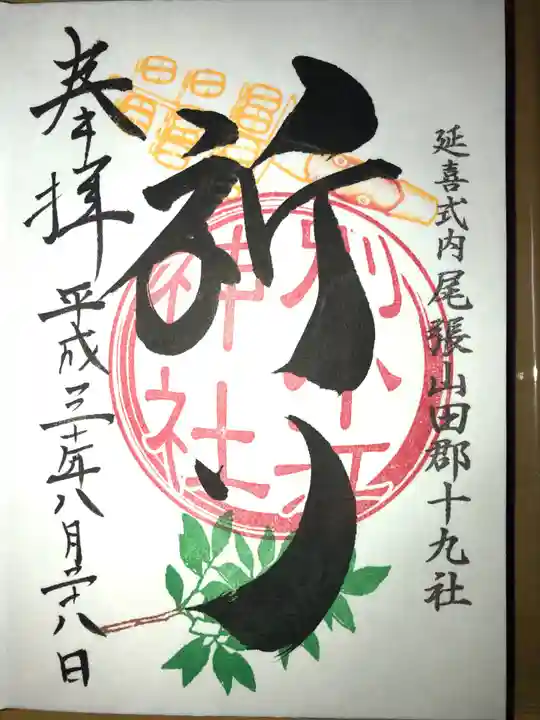 延喜式内尾張山田郡十九社
祈り
別小江
神社
奉拝
平成三十年八月二十八日